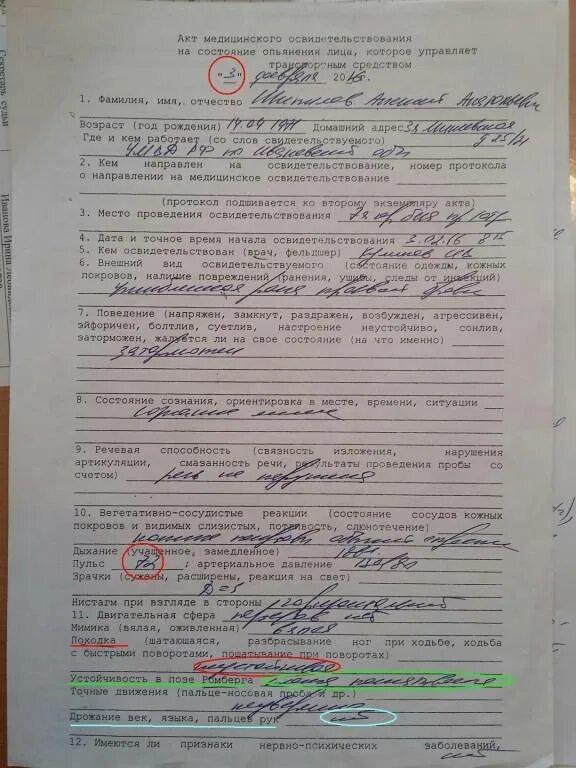 Акт медицинского освидетельствования
на состояние опьянения лица, которое управляет
транспортным средством
"3" февраля 2016г.
1. Фамилия, имя, отчество
Возраст (год рождения) 14.04 1971 Домашний адрес
Где и кем работает (со слов свидетельствуемого) д 25/21
УМВД РФ по Ивановской обл
2. Кем направлен на освидетельствование, номер протокола
о направлении на медицинское освидетельствование
(протокол подшивается ко второму экземпляру акта)
3. Место проведения освидетельствования
4. Дата и точное время начала освидетельствования 3.02.16 8 15
5. Кем освидетельствован (врач, фельдшер)
6. Внешний вид освидетельствуемого (состояние одежды, кожных
покровов, наличие повреждений (ранения, ушибы, следы от инъекций)
ушибленная рана правой брови
7. Поведение (напряжен, замкнут, раздражен, возбужден, агрессивен,
эйфоричен, болтлив, суетлив, настроение неустойчиво, сонлив,
заторможен, жалуется ли на свое состояние (на что именно)
заторможен
8. Состояние сознания, ориентировка в месте, времени, ситуации
9. Речевая способность (связность изложения, нарушения
артикуляции, смазанность речи, результаты проведения пробы со
счетом) речь не нарушена
10. Вегетативно-сосудистые реакции (состояние сосудов кожных
покровов и видимых слизистых, потливость, слюнотечение)
кожные покровы обычной окраски
Дыхание (учащенное, замедленное)
Пульс 72 ; артериальное давление 120/80
Зрачки (сужены, расширены, реакция на свет)
D=S
Нистагм при взгляде в стороны горизонтальный
11. Двигательная сфера
Мимика (вялая, оживленная) вялая
Походка (шатающаяся, разбрасывание ног при ходьбе, ходьба
с быстрыми поворотами, пошатывание при поворотах)
неустойчивая
Устойчивость в позе Ромберга
Точные движения (пальце-носовая проба и др.)
неуверенно
Дрожание век, языка, пальцев рук нет
12. Имеются ли признаки нервно-психических заболеваний,
нет
Секретарь судьи
Иванова Ирина